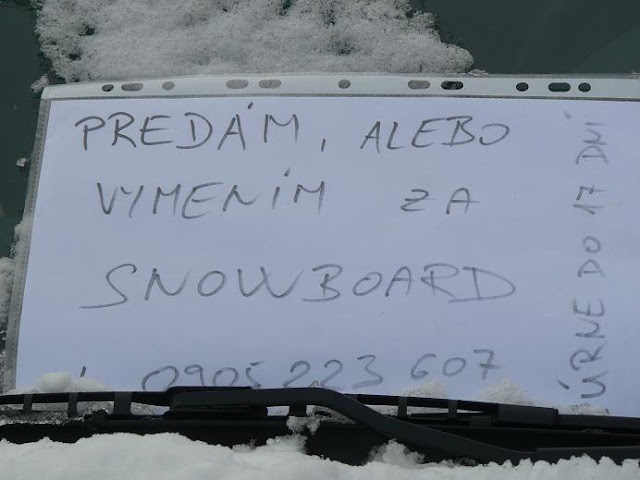 PREDÁM, ALEBO
VYMENÍM ZA
SNOWBOARD
0905 223 607
ÚRNE DO 17 DNÍ